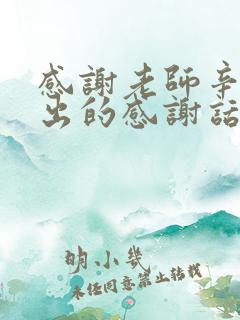 感謝老師辛
出的感謝話
明小幾
未任同意禁止转载